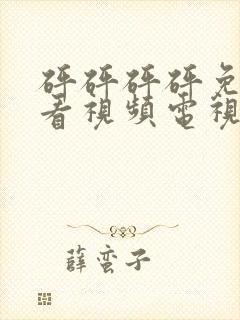 砰砰砰砰免
看視頻電視
薛蛮子